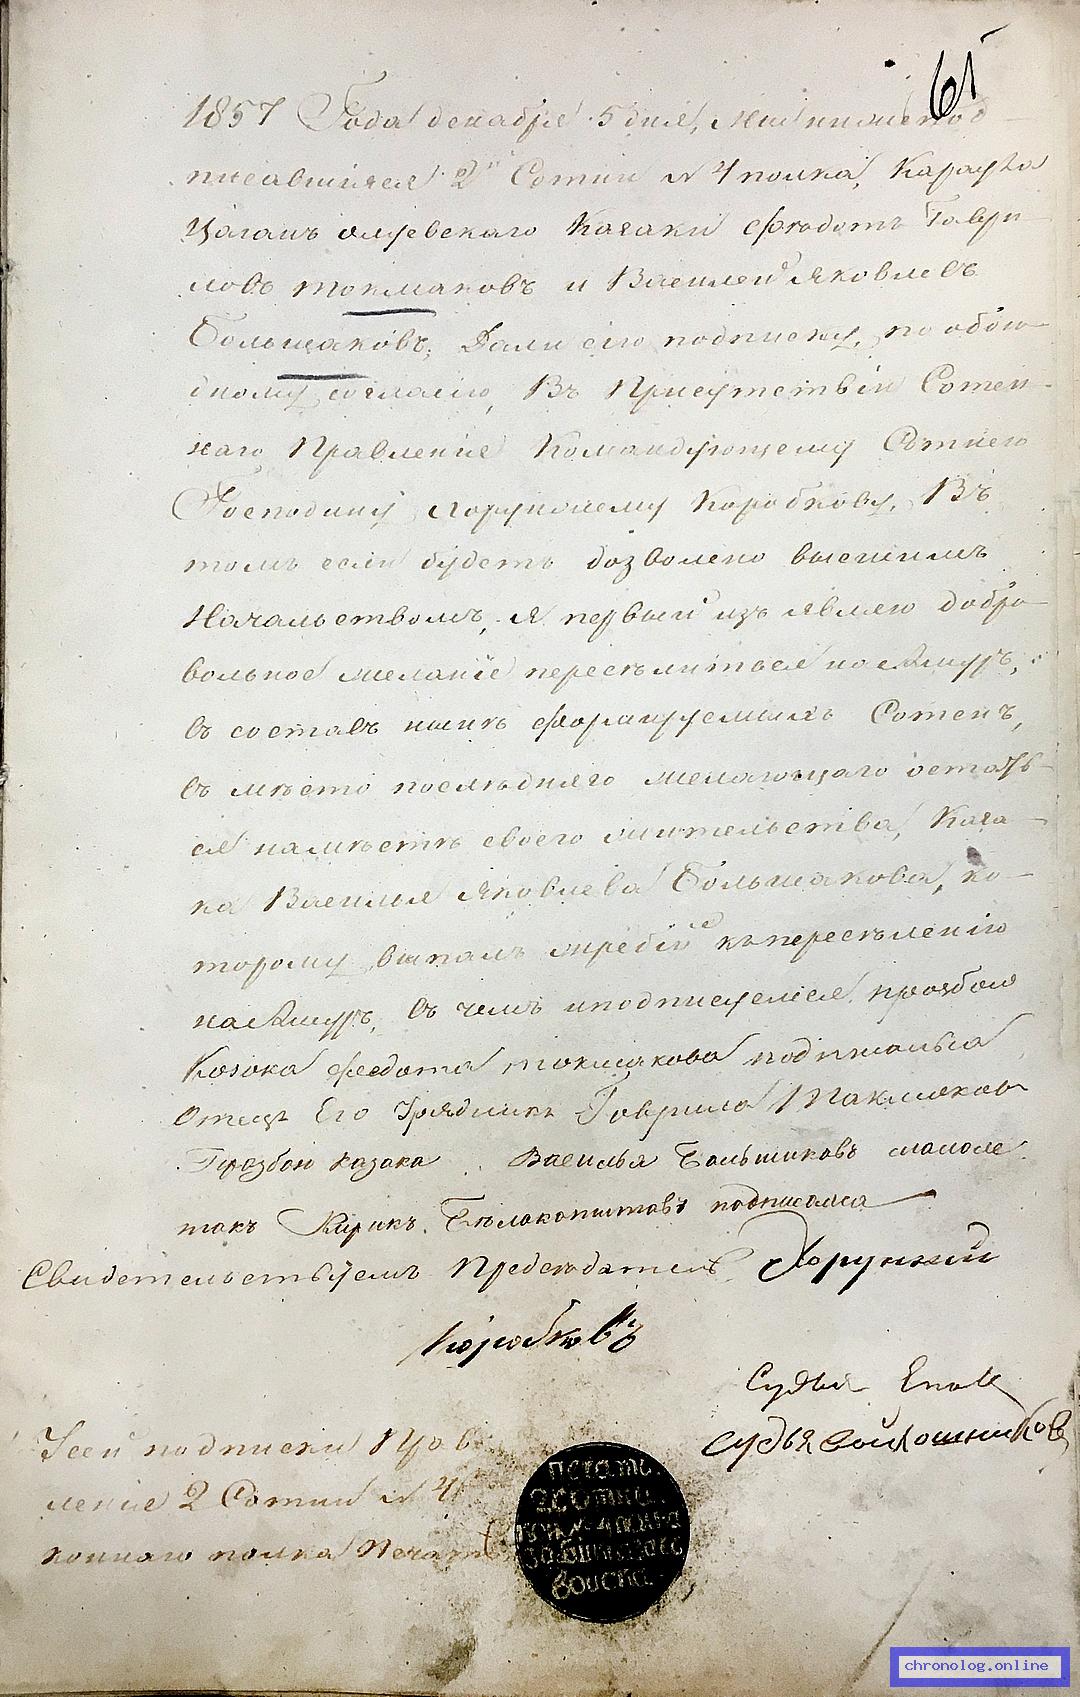 65
1857 Года декабря 5 дня, мы нижепод-
писавшиеся 2й Сотни № 4 полка, Караула
Цаган олуевскаго Казаки Фћодотъ Гаври-
ловъ токмаковъ и Василей Яковлевъ
Большаковъ; Дали сію подписку, по обою-
дному согласію, Въ Присутствіи Сотен-
наго Правленіе Командующему Сотнею
Господину Хорунжему Коробкову, Въ
томъ если будетъ дозволено высшимъ
Начальствомъ, я первый изъявляю добро-
вольное желаніе переселиться на Амуръ,
въ составъ нынѣ формируемыхъ Сотенъ,
въ мѣсто послѣдняго желающаго остать-
ся на мѣстѣ своего жительства, Каза-
ка Василья Яковлева Большакова, ко-
торому выпалъ жребій къ переселенію
на Амуръ, въ чемъ и подписуемся, прозбою
Козока федота токмакова подписалься
Отецъ Его Урядникъ Гаврило Такмаков
Прозбою казака Василья Большиковъ малоле
такъ Кирикъ Бѣлокопытовъ подписался
Свидетельствуемъ Председатель Хорунжий
Коробковъ
Судья Епов
Судья Сойкошниковъ
У сей подписки Прав
ление 2 Сотни № 4
коннаго полка Печать
печать
2 сотни
кон № 4 полка
Забайкальс
войска
chronolog.online